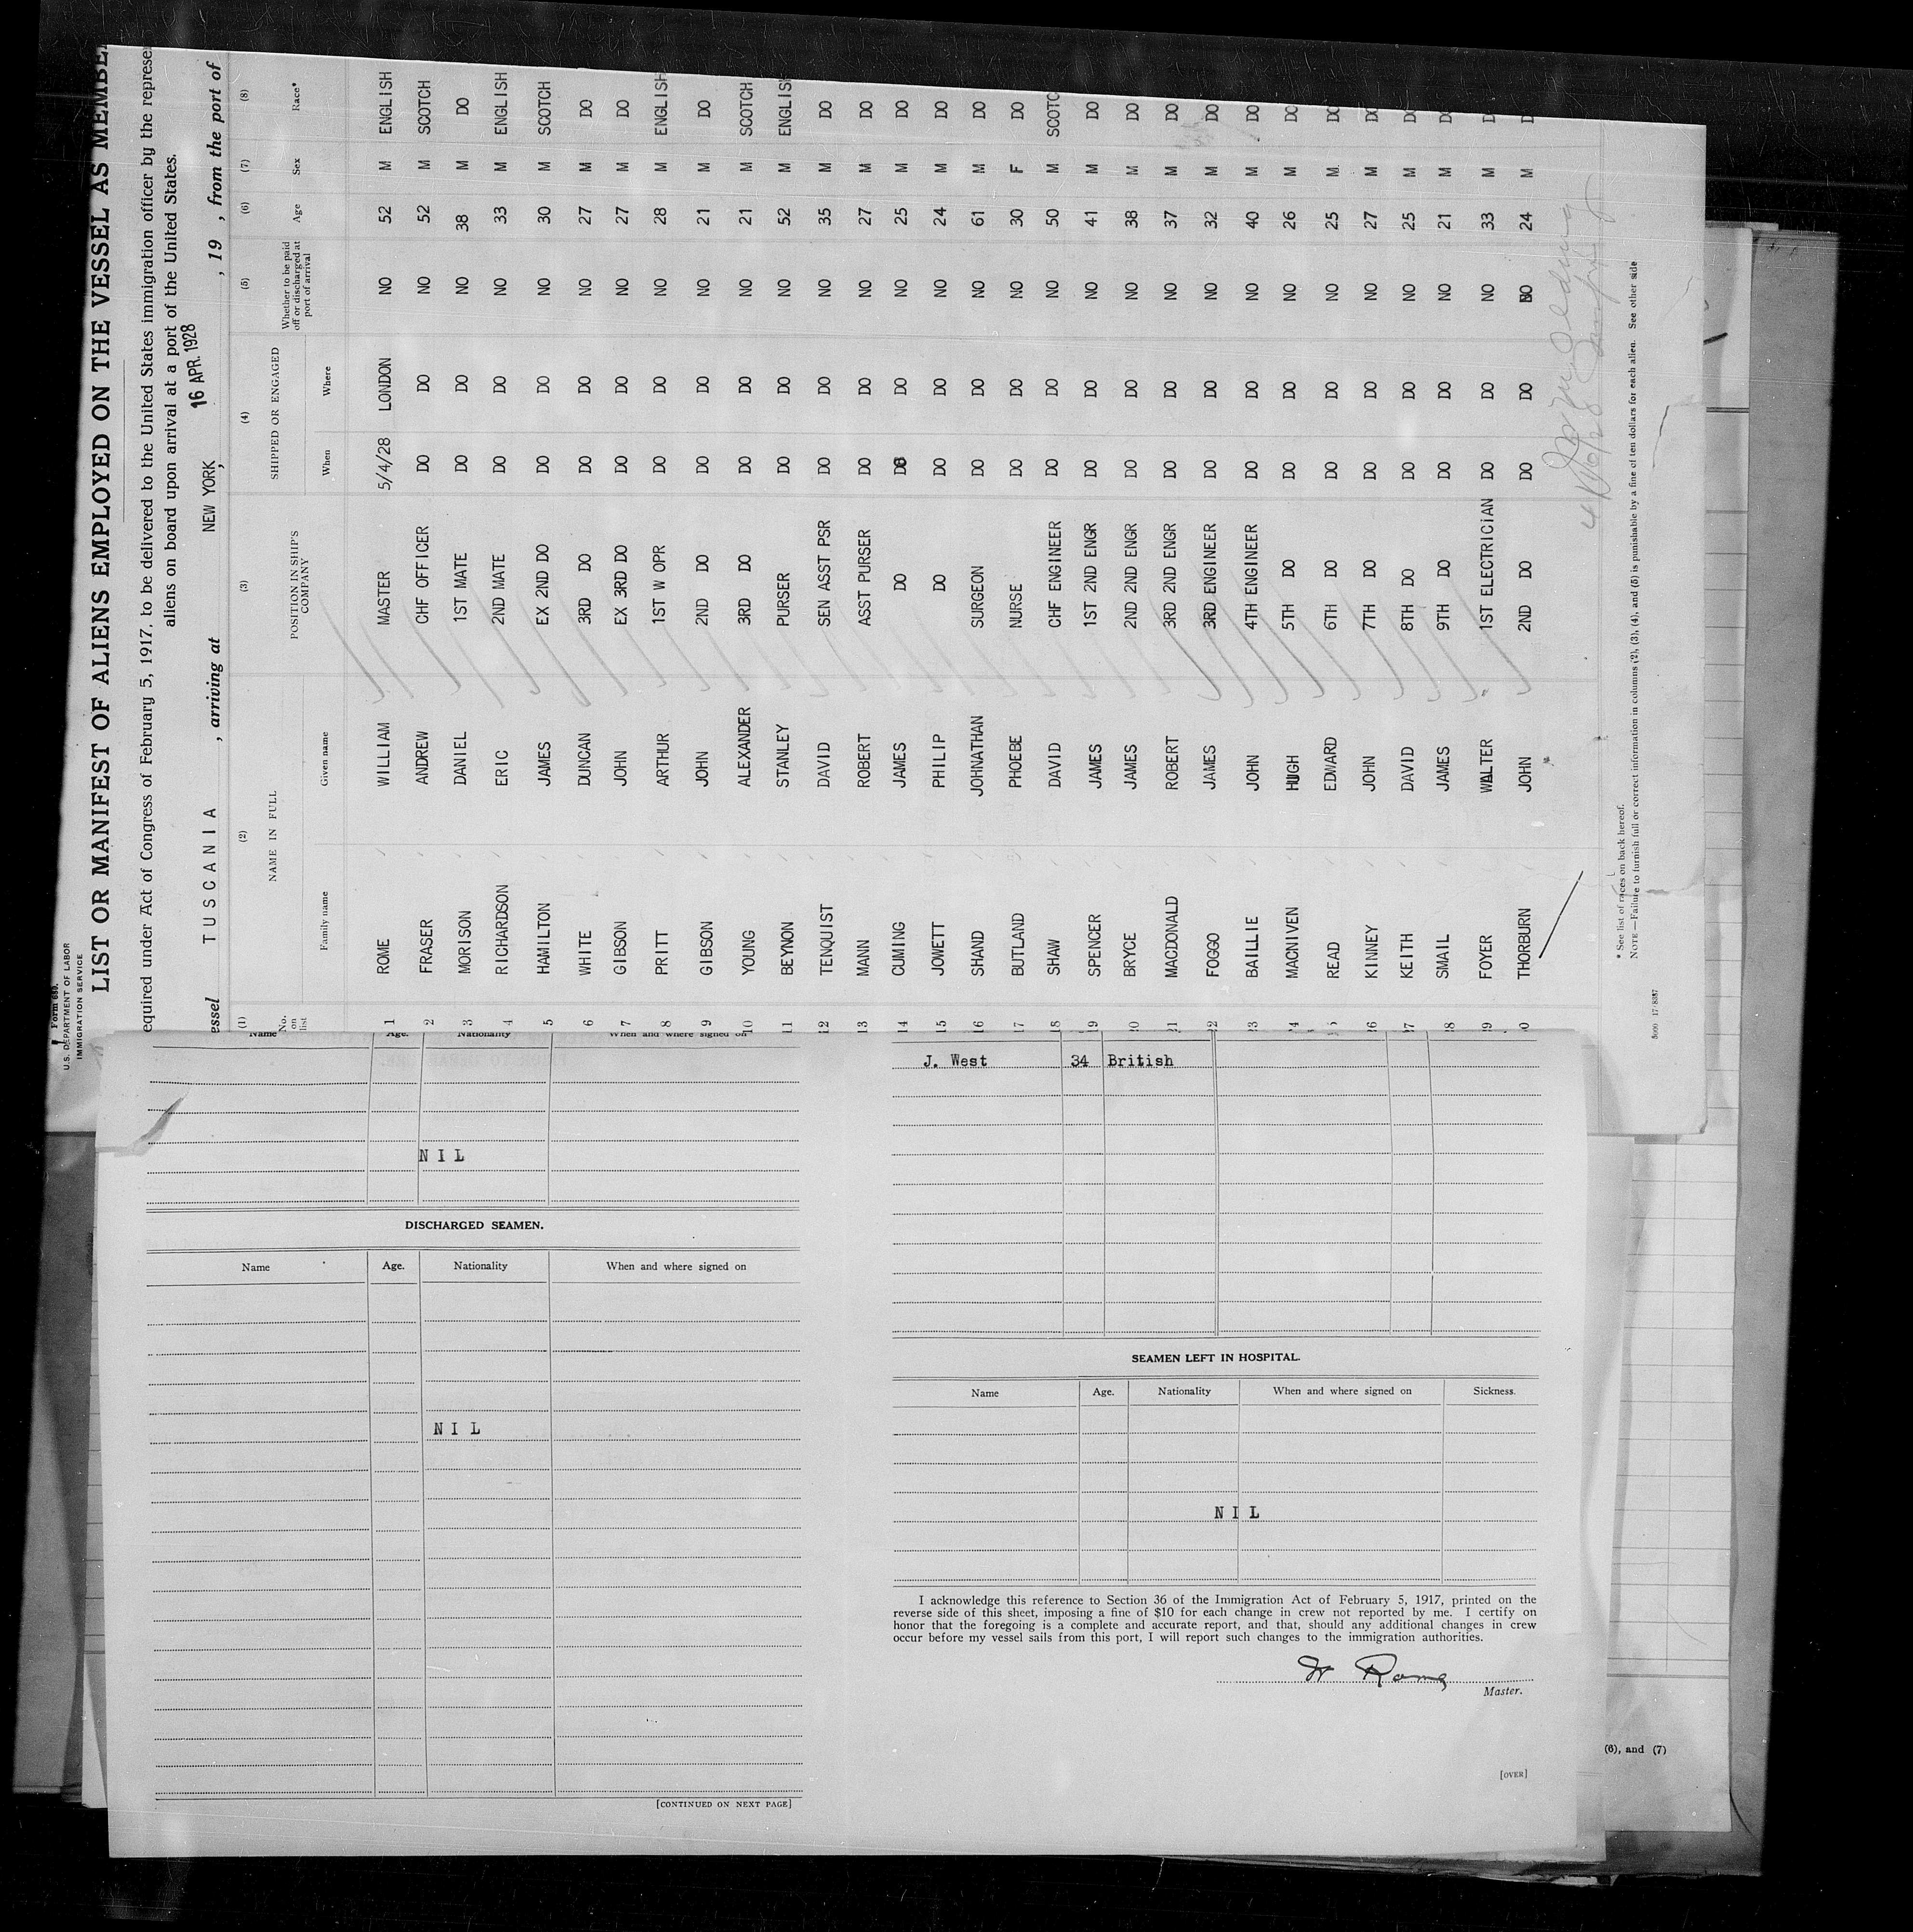 Form 680.
U.S. DEPARTMENT OF LABOR
IMMIGRATION SERVICE
LIST OR MANIFEST OF ALIENS EMPLOYED ON THE VESSEL AS MEMBE
equired under Act of Congress of February 5, 1917, to be delivered to the United States immigration officer by the represe
aliens on board upon arrival at a port of the United States.
essel TUSCANIA , arriving at NEW YORK, 16 APR. 1928 , 19 , from the port of
(1) (2) (3) (4) (5) (6) (7) (8)
No. on list NAME IN FULL POSITION IN SHIP'S COMPANY SHIPPED OR ENGAGED Whether to be paid off or discharged at port of arrival Age Sex Race*
Family name Given name When Where
1 ROME WILLIAM MASTER 5/4/28 LONDON NO 52 M ENGLISH
2 FRASER ANDREW CHF OFFICER DO DO NO 52 M SCOTCH
3 MORISON DANIEL 1ST MATE DO DO NO 38 M DO
4 RICHARDSON ERIC 2ND MATE DO DO NO 33 M ENGLISH
5 HAMILTON JAMES EX 2ND DO DO DO NO 30 M SCOTCH
6 WHITE DUNCAN 3RD DO DO DO NO 27 M DO
7 GIBSON JOHN EX 3RD DO DO DO NO 27 M DO
8 PRITT ARTHUR 1ST W OPR DO DO NO 28 M ENGLISH
9 GIBSON JOHN 2ND DO DO DO NO 21 M DO
10 YOUNG ALEXANDER 3RD DO DO DO NO 21 M SCOTCH
11 BEYNON STANLEY PURSER DO DO NO 52 M ENGLISH
12 TENQUIST DAVID SEN ASST PSR DO DO NO 35 M DO
13 MANN ROBERT ASST PURSER DO DO NO 27 M DO
14 CUMING JAMES DO DO DO NO 25 M DO
15 JOWETT PHILIP DO DO DO NO 24 M DO
16 SHAND JOHNATHAN SURGEON DO DO NO 61 M DO
17 BUTLAND PHOEBE NURSE DO DO NO 30 F DO
18 SHAW DAVID CHF ENGINEER DO DO NO 50 M SCOTC
19 SPENCER JAMES 1ST 2ND ENGR DO DO NO 41 M DO
20 BRYCE JAMES 2ND 2ND ENGR DO DO NO 38 M DO
21 MACDONALD ROBERT 3RD 2ND ENGR DO DO NO 37 M DO
22 FOGGO JAMES 3RD ENGINEER DO DO NO 32 M DO
23 BAILLIE JOHN 4TH ENGINEER DO DO NO 40 M DO
24 MACNIVEN HUGH 5TH DO DO DO NO 26 M DO
25 READ EDWARD 6TH DO DO DO NO 25 M DO
26 KINNEY JOHN 7TH DO DO DO NO 27 M DO
27 KEITH DAVID 8TH DO DO DO NO 25 M DO
28 SMAIL JAMES 9TH DO DO DO NO 21 M DO
29 FOYER WALTER 1ST ELECTRICIAN DO DO NO 33 M D
0 THORBURN JOHN 2ND DO DO DO NO 24 M D
* See list of races on back hereof.
NOTE.—Failure to furnish full or correct information in columns (2), (3), (4), and (5) is punishable by a fine of ten dollars for each alien. See other side
Name Age. Nationality When and where signed on
NIL
DISCHARGED SEAMEN.
Name Age. Nationality When and where signed on
NIL
[CONTINUED ON NEXT PAGE]
J. West 34 British
SEAMEN LEFT IN HOSPITAL.
Name Age. Nationality When and where signed on Sickness.
NIL
I acknowledge this reference to Section 36 of the Immigration Act of February 5, 1917, printed on the
reverse side of this sheet, imposing a fine of $10 for each change in crew not reported by me. I certify on
honor that the foregoing is a complete and accurate report, and that, should any additional changes in crew
occur before my vessel sails from this port, I will report such changes to the immigration authorities.
W Rome
Master.
[OVER]
(6), and (7)